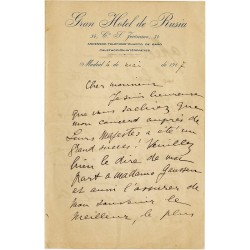 Gran Hotel de Rusia
34, C. S. Jeronimo, 34
Madrid 6 de mai de 1917
Cher monsieur
Je suis heureuse
que vous sachiez que
mon concert auprès de
Leurs Majestés a été un
grand succès! Veuillez
bien le dire de ma
part à madame
et aussi l'assurer de
mon souvenir le
meilleur, le plus